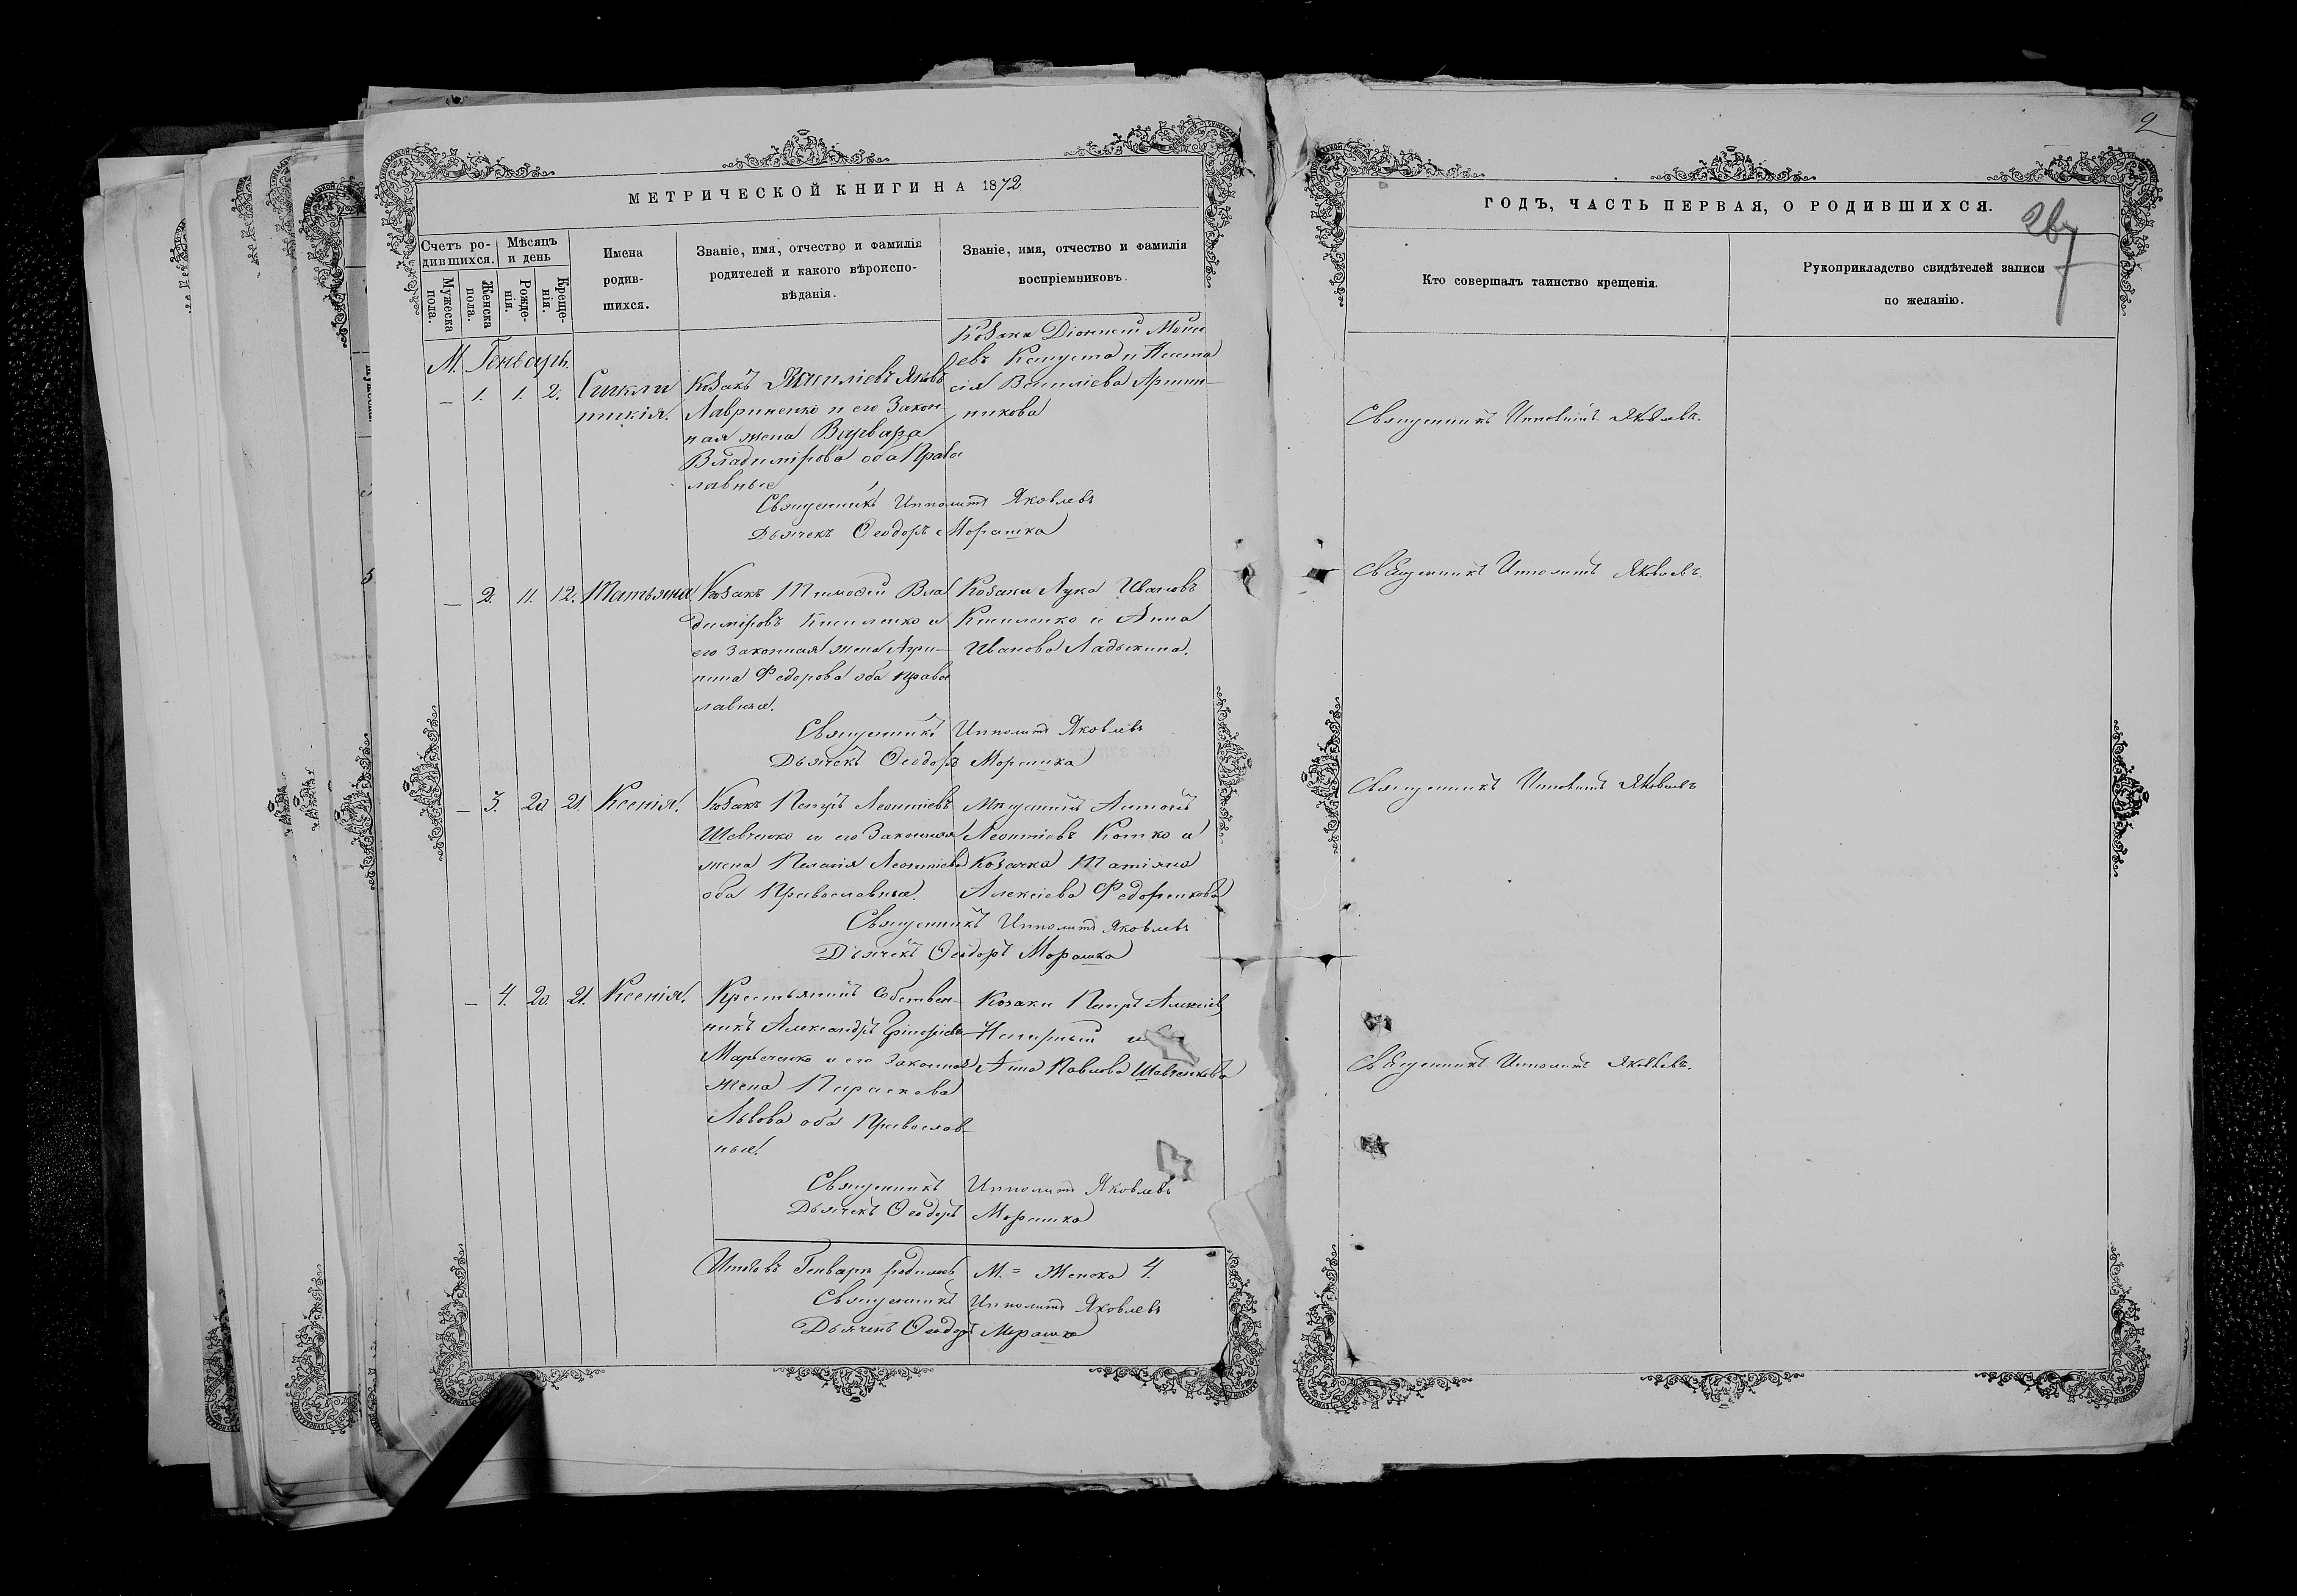 2
МЕТРИЧЕСКОЙ КНИГИ НА 1872
ГОДЪ, ЧАСТЬ ПЕРВАЯ, О РОДИВШИХСЯ.
Счетъ ро-
дившихся.
Мужеска
пола.
Женска
пола.
Мѣсяцъ
и день
Рожде-
нія.
Креще-
нія.
Имена
родив-
шихся.
Званіе, имя, отчество и фамилія
родителей и какого вѣроиспо-
вѣданія.
Званіе, имя, отчество и фамилія
воспріемниковъ.
Кто совершалъ таинство крещенія.
Рукоприкладство свидѣтелей записи
по желанію.
М. Генварь.
— 1. 1. 2. Сигкли
тикія.
Козакъ Василіевъ Яковъ
Лавриненко и его Закон-
ная жена Варвара
Владимірова оба Право
лавные
Козаки Діонисій Моисе
евъ Капуста и Наста
сія Василіева
Священникъ Ипполитъ Яковлевъ.
Священникъ Ипполитъ Яковлевъ
Дьячекъ Ѳеодоръ Морашка
— 2. 11. 12. Татьяна
Козакъ Тимофей Вла
диміровъ Кисиленко и
его Законная жена Агри-
пина Федорова оба Право
лавные.
Козаки Лука Ивановъ
Кисиленко и Анна
Иванова Ладыкина.
Священникъ Ипполитъ Яковлевъ.
Священникъ Ипполитъ Яковлевъ
Дьячекъ Ѳеодоръ Морашка
— 3. 20. 21. Ксенія.
Козакъ Петръ Леонтіевъ
Шевченко и его Законная
жена Пелагія Леонтіева
оба Православные.
Мѣщанинъ Антонъ
Леонтіевъ Котко и
Козачка Татіяна
Алексіева Федоренкова
Священникъ Ипполитъ Яковлевъ
Священникъ Ипполитъ Яковлевъ
Дьячекъ Ѳеодоръ Морашка
— 4. 20. 21. Ксенія.
Крестьянинъ Собствен-
никъ Александръ Григоріевъ
Марченко и его Законная
жена Параскева
Львова оба Православ-
ные.
Козаки Петръ Алексіевъ
и
Анна Павлова Шевченкова
Священникъ Ипполитъ Яковлевъ.
Священникъ Ипполитъ Яковлевъ
Дьячекъ Ѳеодоръ Морашка
Итого въ Генварѣ родилось М. = Женска 4.
Священникъ Ипполитъ Яковлевъ
Дьячекъ Ѳеодоръ Морашка